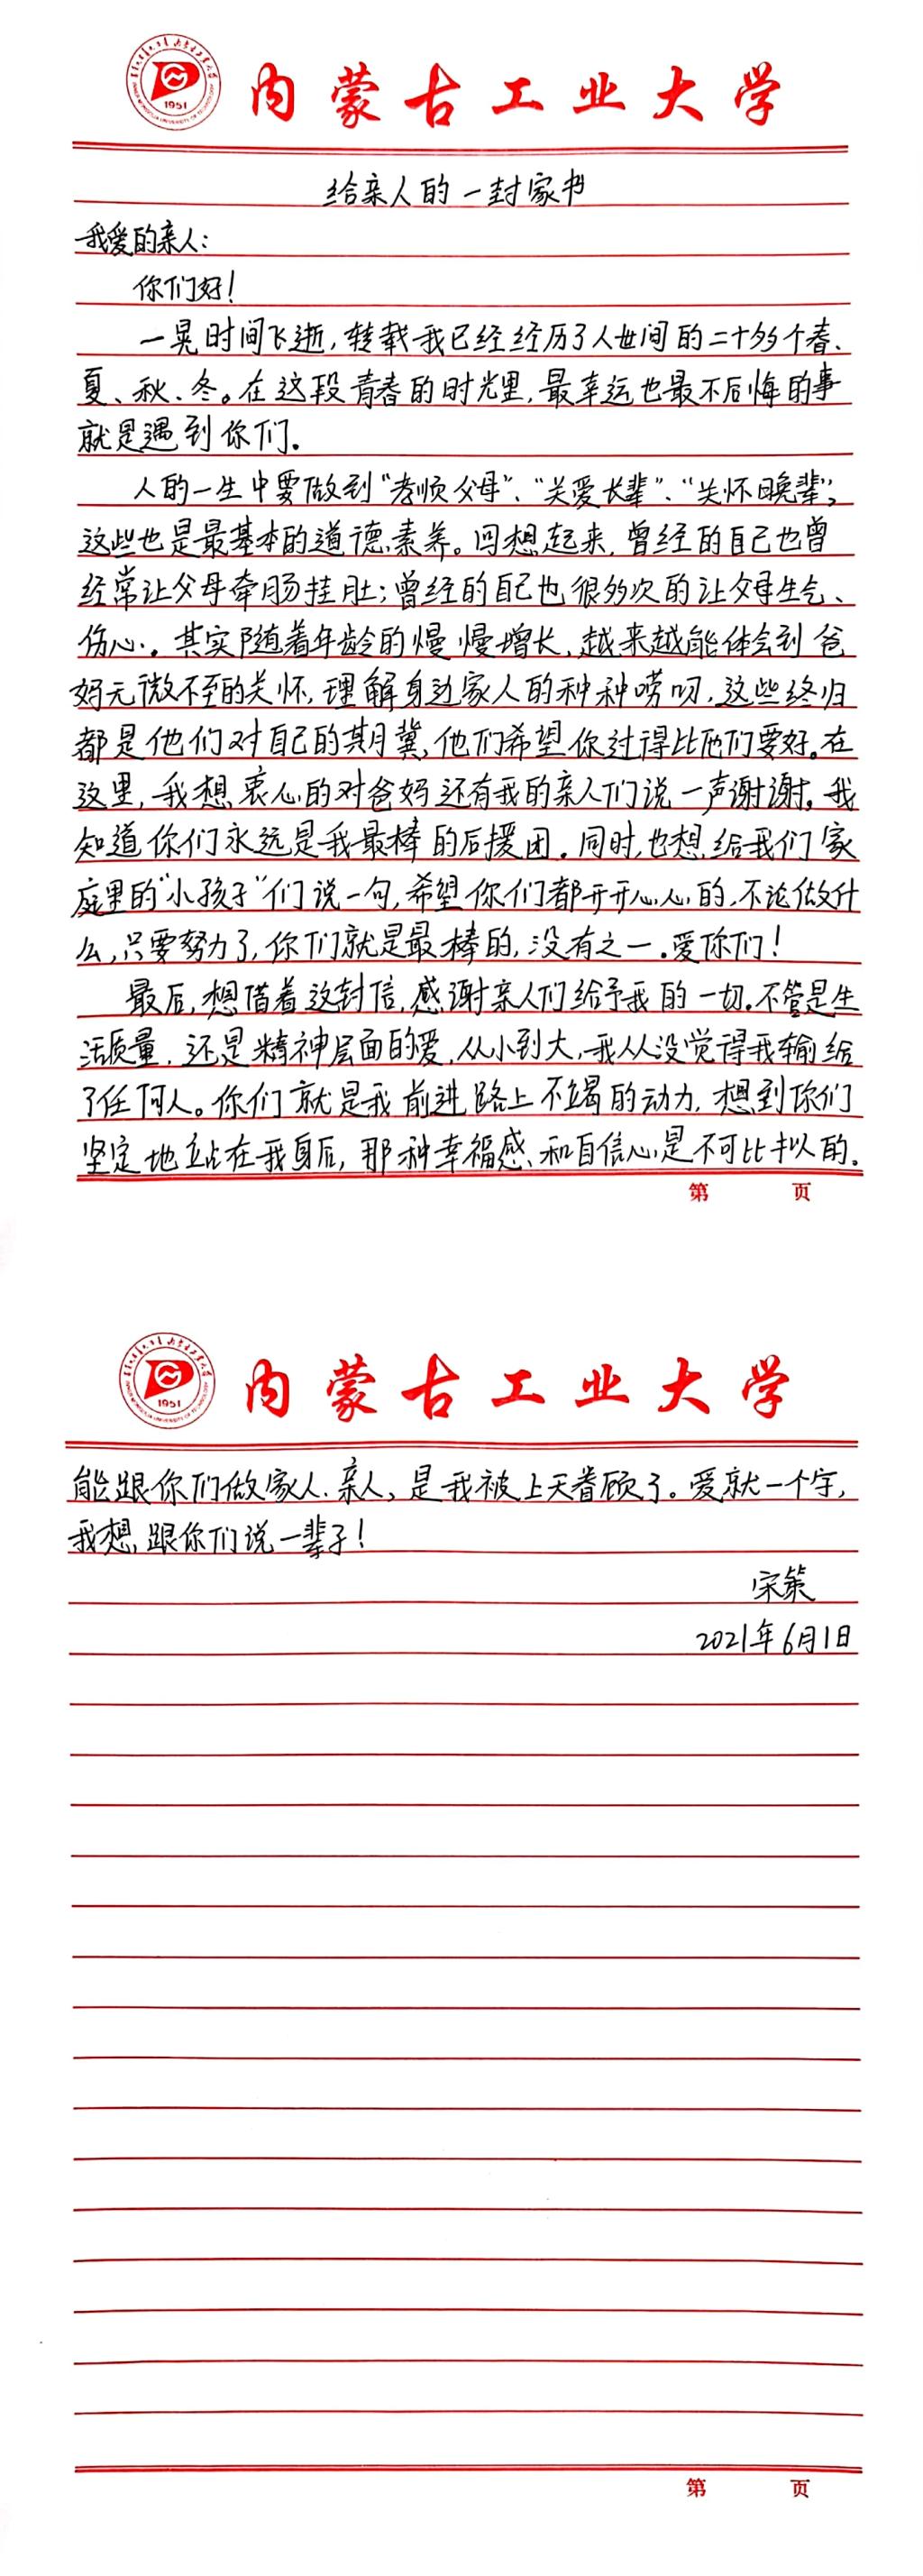 1951
内蒙古工业大学
给亲人的一封家书
我爱的亲人：
你们好！
一晃时间飞逝，转载我已经经历了人世间的二十多个春、
夏、秋、冬。在这段青春的时光里，最幸运也最不后悔的事
就是遇到你们。
人的一生中要做到“孝顺父母”、“关爱长辈”、“关怀晚辈”，
这些也是最基本的道德素养。回想起来，曾经的自己也曾
经常让父母牵肠挂肚；曾经的自己也很多次的让父母生气、
伤心。其实随着年龄的慢慢增长，越来越能体会到爸
妈无微不至的关怀，理解身边家人的种种唠叨，这些终归
都是他们对自己的期冀，他们希望你过得比他们要好。在
这里，我想衷心的对爸妈还有我的亲人们说一声谢谢。我
知道你们永远是我最棒的后援团。同时，也想给我们家
庭里的“小孩子”们说一句，希望你们都开开心心的，不论做什
么，只要努力了，你们就是最棒的，没有之一。爱你们！
最后，想借着这封信，感谢亲人们给予我的一切。不管是生
活质量，还是精神层面的爱，从小到大，我从没觉得我输给
了任何人。你们就是我前进路上不竭的动力，想到你们
坚定地站在我身后，那种幸福感、和自信心是不可比拟的。
第 页
1951
内蒙古工业大学
能跟你们做家人、亲人，是我被上天眷顾了。爱就一个字，
我想跟你们说一辈子！
宋策
2021年6月1日
第 页